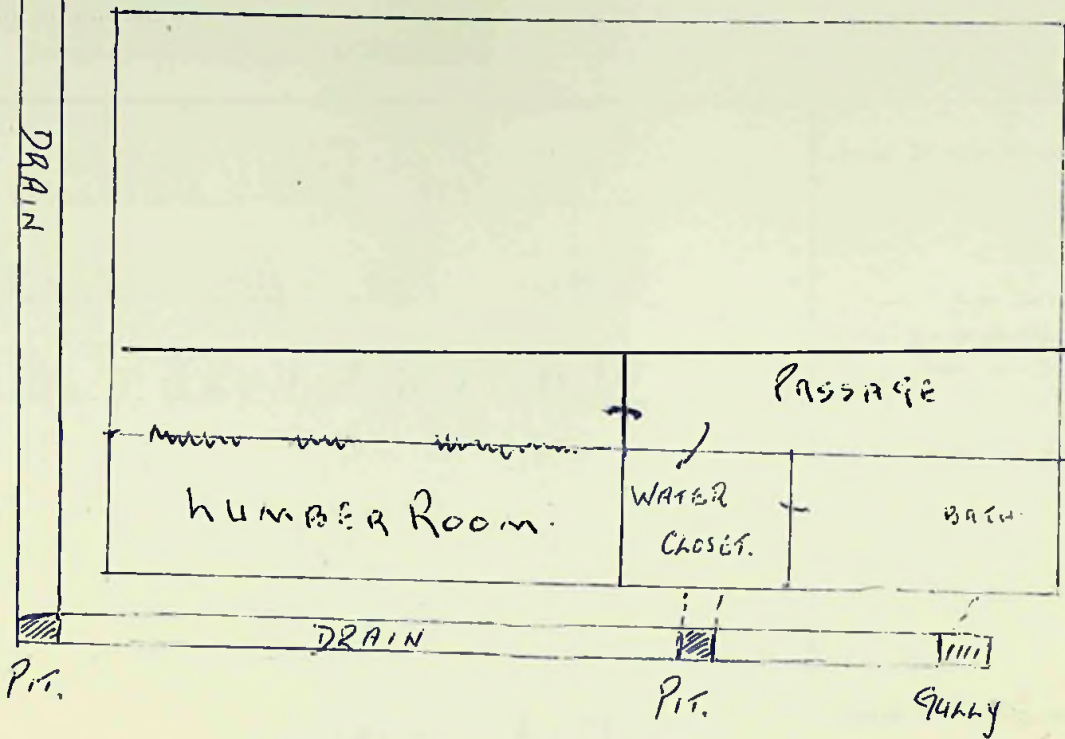 DRAIN
PASSAGE
LUMBER ROOM.
WATER
CLOSET.
BATH.
DRAIN
PIT.
PIT.
GULLY